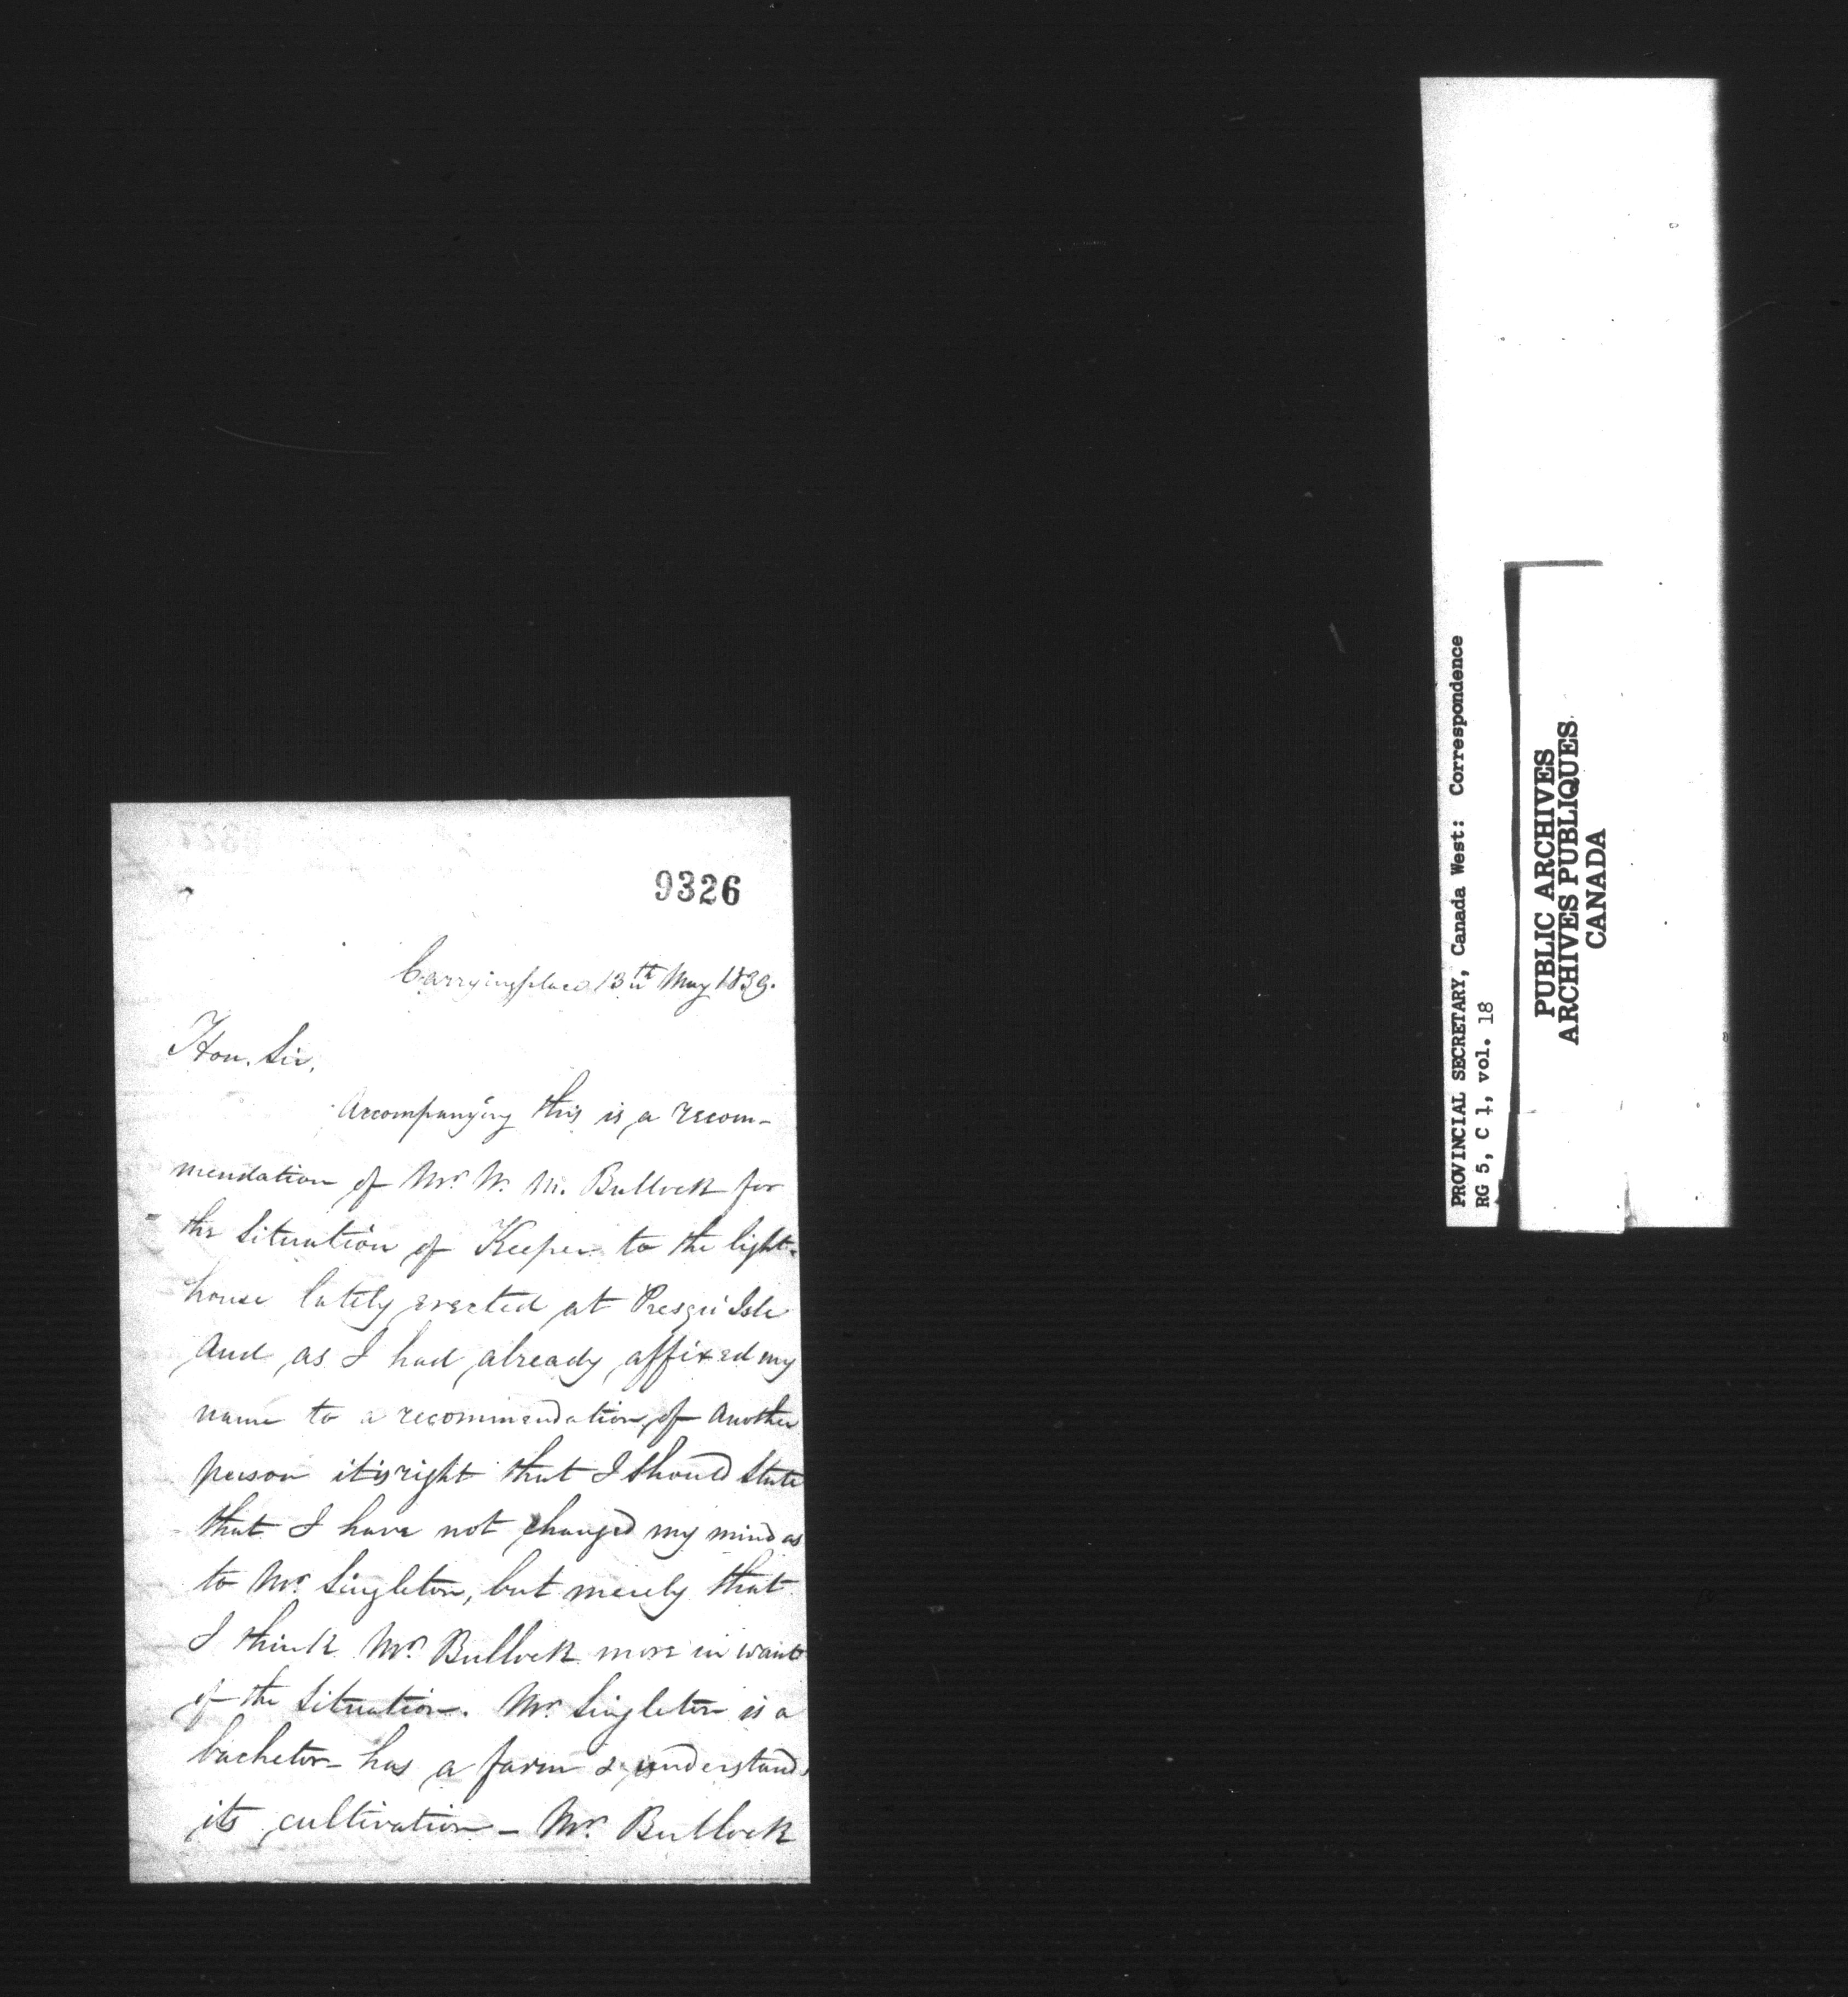 9326
Carryingplace 13th May 1839.
Hon. Sir,
Accompanying this is a recom-
mendation of Mr. W. M. Bullock for
the Situation of Keeper to the light-
house lately erected at Presqu'Isle
And as I had already affixed my
name to a recommendation of another
person it is right that I should State
that I have not changed my mind as
to Mr. Singleton, but merely that
I think Mr. Bullock more in want
of the Situation. Mr. Singleton is a
bachelor - has a farm & understands
its cultivation - Mr. Bullock
PROVINCIAL SECRETARY, Canada West: Correspondence
RG 5, C 1, vol. 18
PUBLIC ARCHIVES
ARCHIVES PUBLIQUES
CANADA